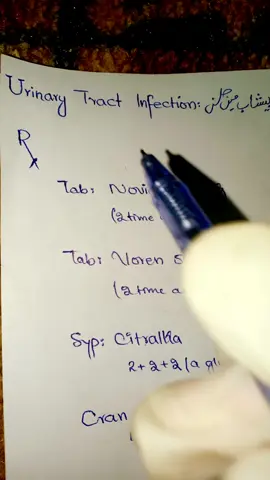 Urinary Tract Infection: پیشاب میں جلن
Rx
Tab: Novi
(2 time
Tab: Voren
(2 time a
Syp: Citralka
2+2+2 (a
Cran